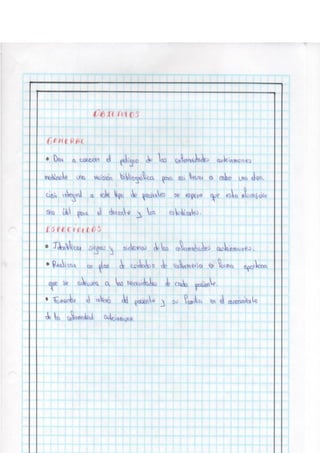 OBJETIVOS
GENERAL
• Dar a conocer el peligro de las enfermedades autoinmunes
mediante una revisión bibliográfica para así llevar a cabo una aten
ción integral a este tipo de pacientes se espera que esta
sea útil para el docente y los estudiantes.
ESPECIFICOS
• Identificar signos y síntomas de las enfermedades autoinmunes.
• Realizar un plan de cuidados de enfermería en forma oportuna
que se adecuen a las necesidades de cada paciente.
• Fomentar el interés del paciente y su familia en el
de la enfermedad autoinmune